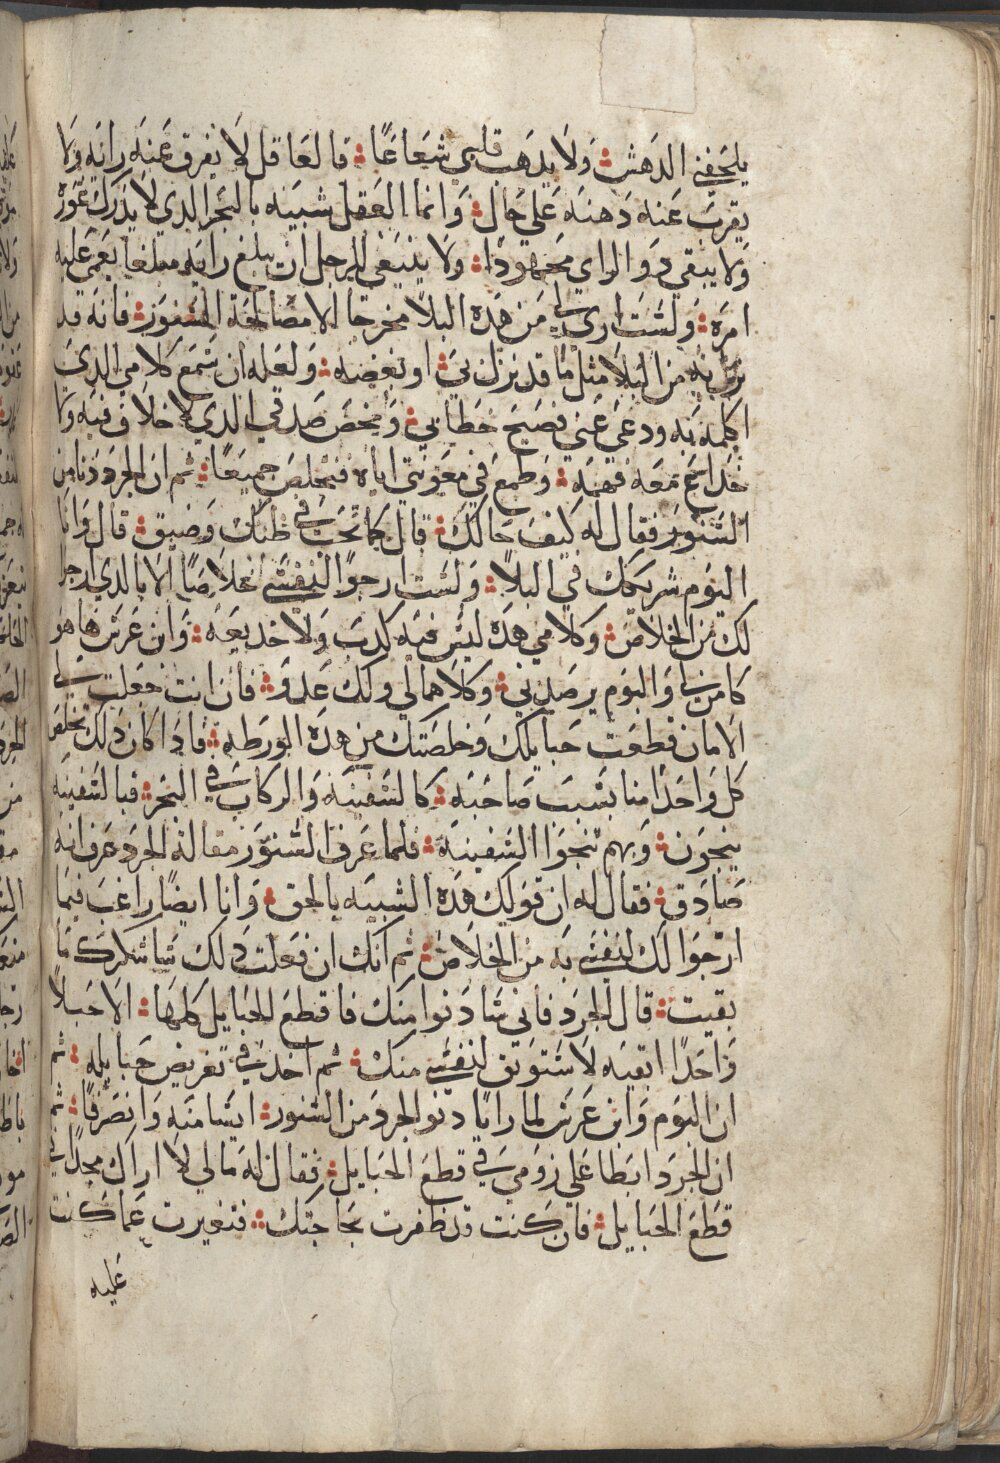 يلحقني الدهش ولا يدهب قلبي شعاعًا فالعاقل لا يفرق عنه رايه ولا
يقرب عنه دهنه علي حال وانما العقل شبيه بالبحر الدي لا يدرك غوره
ولا يبقي دو الراي مجهودا ولا ينبغي للرجل ان يبلغ رايه مبلغا يعمي عليه
امره ولست اري لي من هده البلا مخرجا الا مصالحة السنور فانه قد
نزل به من البلا مثل ما قد نزل بي او بعضه ولعله ان سمع كلامي الدي
اكلمه به ودعي عني فصيح خطابي ومحض صدقي الدي لا خلاف فيه ولا
خداع معه فهمه وطمع في معونتي اياه فنخلص جميعًا ثم ان الجرد دنا من
السنور فقال له كيف حالك قال كما تحب في ظنك وضيق قال وانا
اليوم شريكك في البلا ولست ارجوا لنفسي خلاصًا الا بالدي ارجوا
لك من الخلاص وكلامي هده ليس فيه كدب ولا خديعه وابن عرس هاهو
كامن لي والبوم يرصدني وكلاهما لي ولك عدو فان انت جعلت لي
الامان قطعت حبايلك وخلصتك من هده الورطه فادا كان دلك تخلص
كل واحدًا منا بسبب صاحبه كالسفينه والركاب في البحر فبالسفينه
ينجون وبهم تنجوا السفينه فلما عرف السنور مقالة الجرد عرف انه
صادق فقال له ان قولك هده الشبيه بالحق وانا ايضًا راغب فيما
ارجوا لك لنفسي به من الخلاص ثم انك ان فعلت دلك ساشكرك ما
بقيت قال الجرد فاني سادنوا منك فاقطع الحبايل كلها الا حبلاً
واحدًا ابقيه لاستوتق لنفسي منك ثم اخد في تقريض حبايله ثم
ان البوم وابن عرس لما رايا دنو الجرد من السنور ايسا منه وانصرفا ثم
ان الجرد ابطا علي رومي في قطع الحبايل فقال له مالي لا اراك مجدًا في
قطع الحبايل فان كنت قد ظفرت بحاجتك فتغيرت عما كنت
عليه